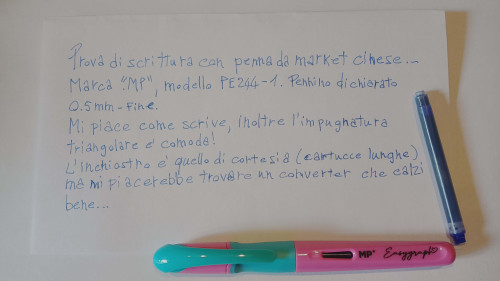 Prova di scrittura con penna da market cinese...
Marca "MP", modello PE244-1. Pennino dichiarato
0.5mm - Fine.
Mi piace come scrive, inoltre l'impugnatura
triangolare e' comoda!
L'inchiostro e' quello di cortesia (cartucce lunghe)
ma mi piacerebbe trovare un converter che calzi
bene...
MP Easygraph